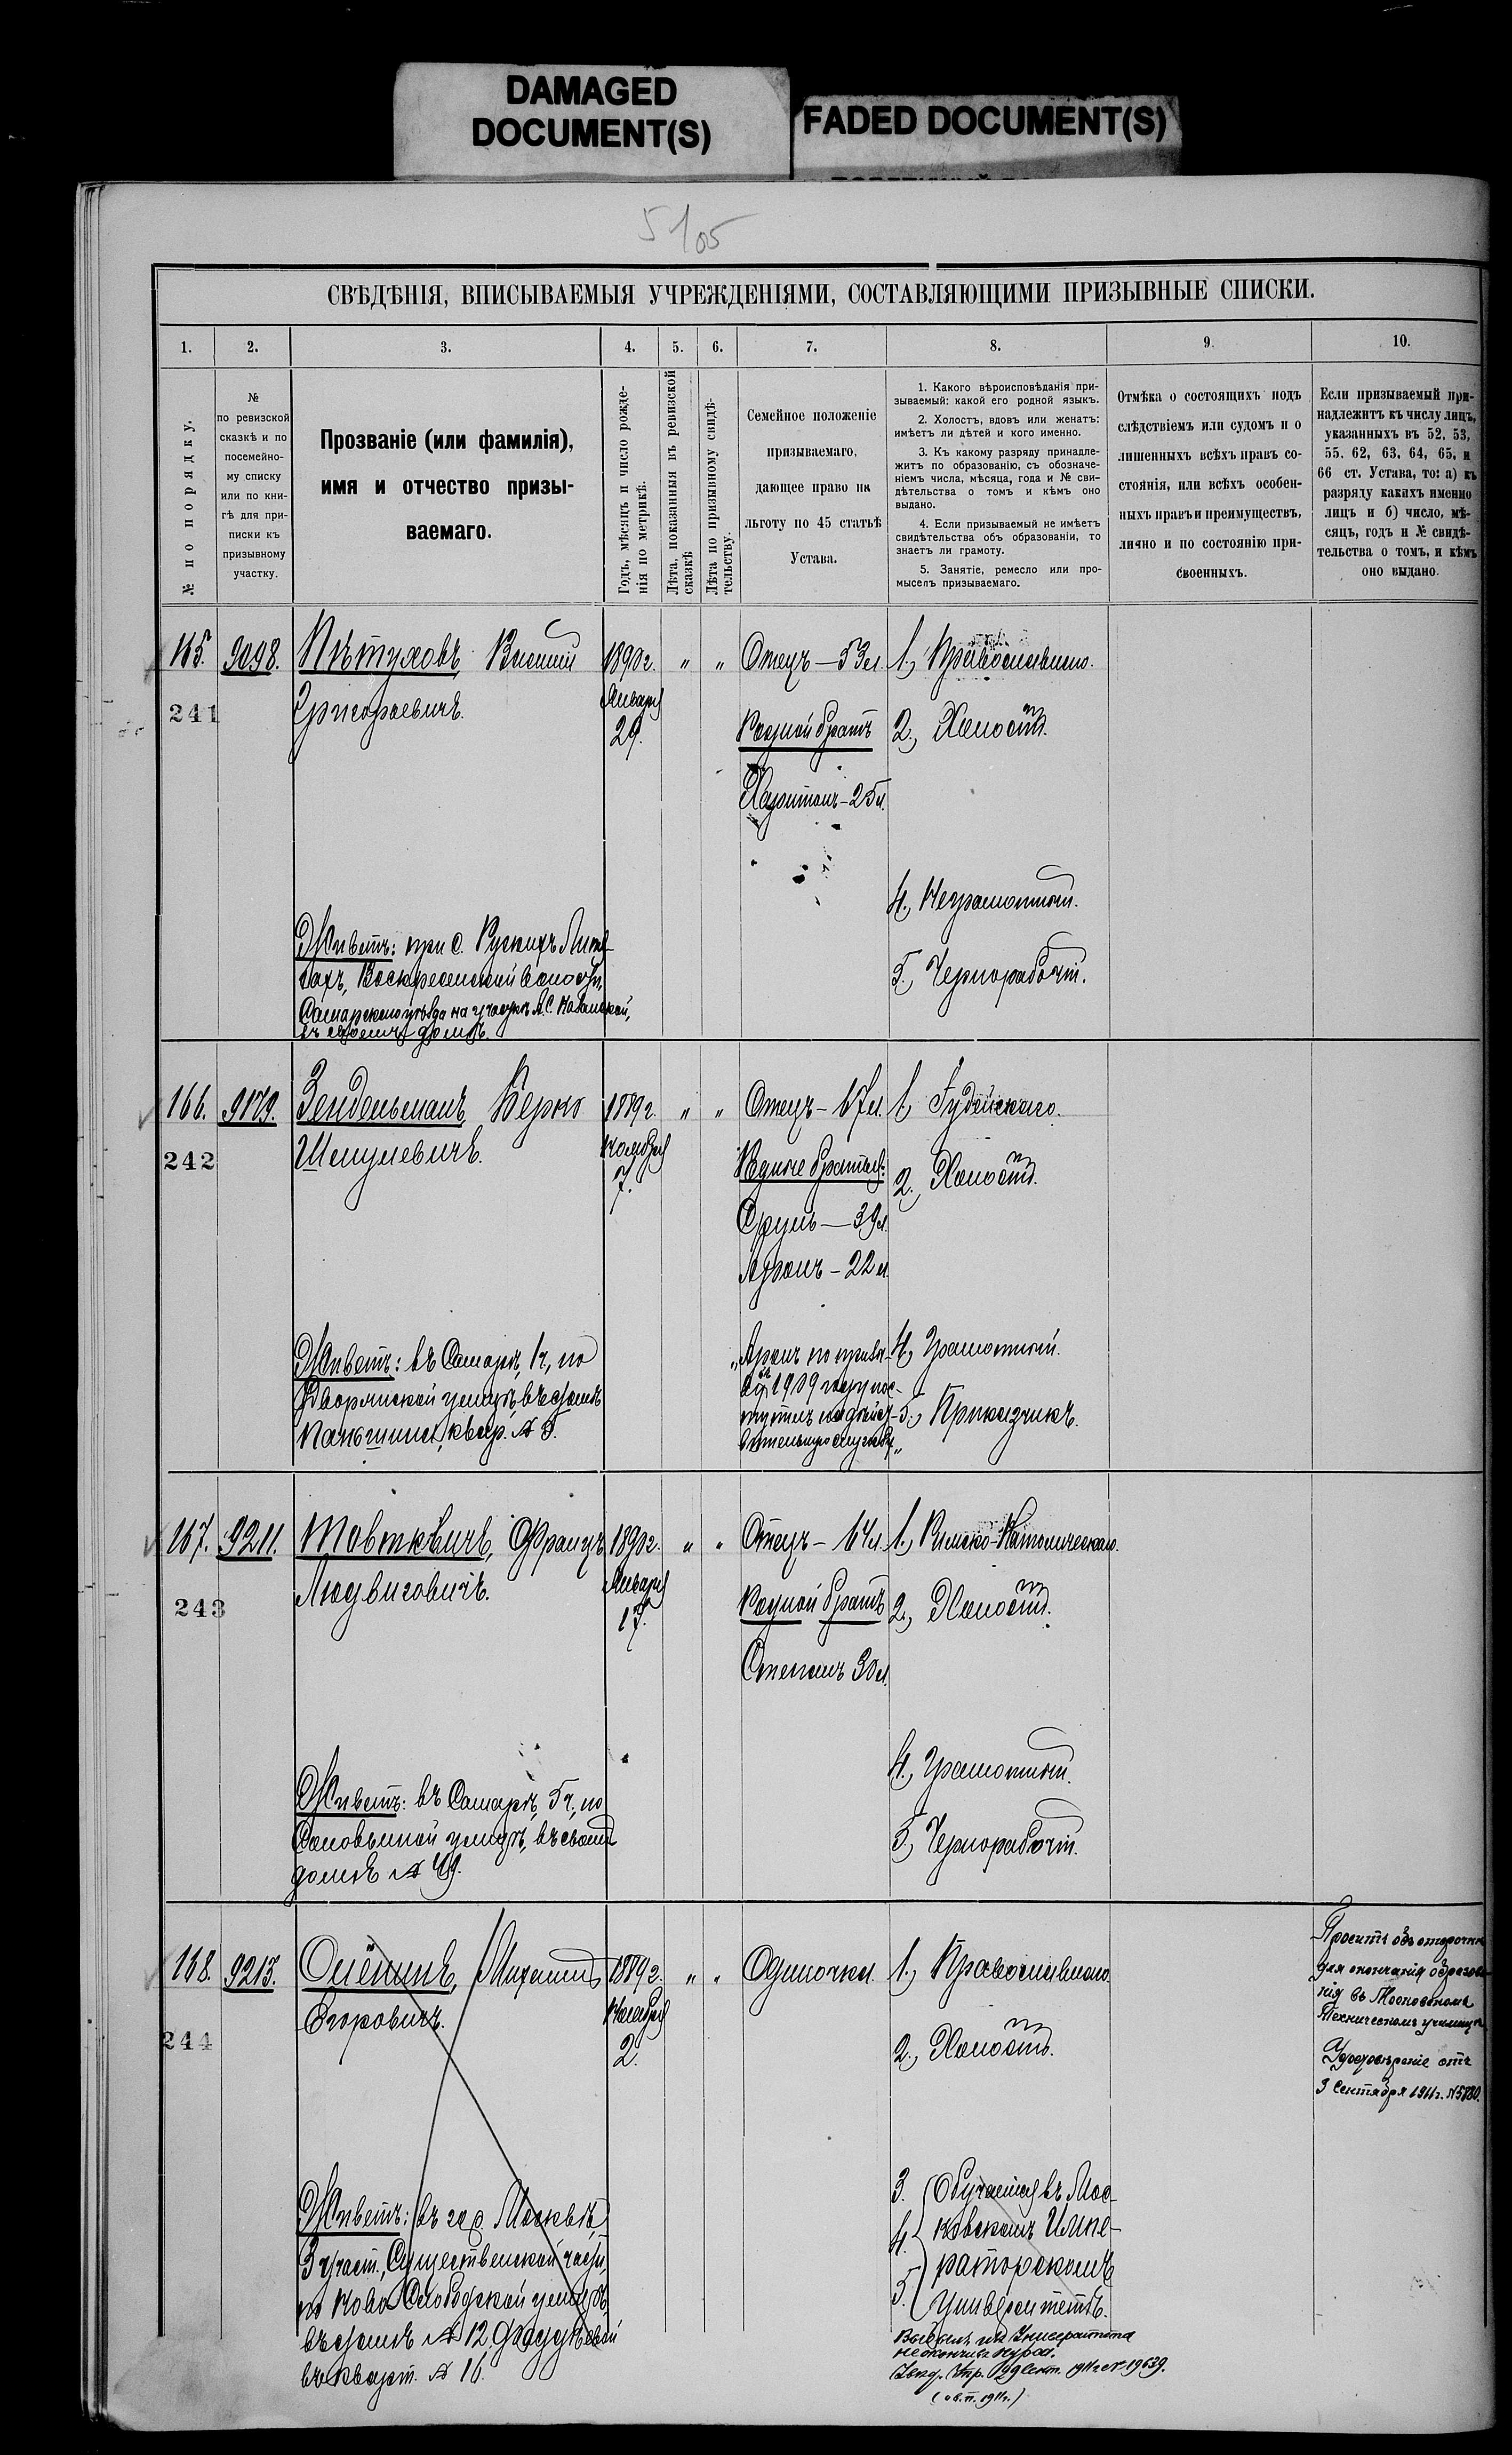 DAMAGED
DOCUMENT(S)
FADED DOCUMENT(S)
5/05
СВѢДѢНІЯ, ВПИСЫВАЕМЫЯ УЧРЕЖДЕНІЯМИ, СОСТАВЛЯЮЩИМИ ПРИЗЫВНЫЕ СПИСКИ.
1.
2.
3.
4.
5.
6.
7.
8.
9.
10.
№ по порядку.
№
по ревизской
сказкѣ и по
посемейно-
му списку
или по кни-
гѣ для при-
писки къ
призывному
участку.
Прозваніе (или фамилія),
имя и отчество призы-
ваемаго.
Годъ, мѣсяцъ и число рожде-
нія по метрикѣ.
Лѣта, показанныя въ ревизской
сказкѣ
Лѣта по призывному свидѣ-
тельству.
Семейное положеніе
призываемаго,
дающее право на
льготу по 45 статьѣ
Устава.
1. Какого вѣроисповѣданія при-
зываемый: какой его родной языкъ.
2. Холостъ, вдовъ или женатъ:
имѣетъ ли дѣтей и кого именно.
3. Къ какому разряду принадле-
житъ по образованію, съ обозначе-
ніемъ числа, мѣсяца, года и № сви-
дѣтельства о томъ и кѣмъ оно
выдано.
4. Если призываемый не имѣетъ
свидѣтельства объ образованіи, то
знаетъ ли грамоту.
5. Занятіе, ремесло или про-
мыселъ призываемаго.
Отмѣка о состоящихъ подъ
слѣдствіемъ или судомъ и о
лишенныхъ всѣхъ правъ со-
стоянія, или всѣхъ особен-
ныхъ правъ и преимуществъ,
лично и по состоянію при-
своенныхъ.
Если призываемый при-
надлежитъ къ числу лицъ,
указанныхъ въ 52, 53,
55, 62, 63, 64, 65, и
66 ст. Устава, то: а) къ
разряду какихъ именно
лицъ и б) число, мѣ-
сяцъ, годъ и № свидѣ-
тельства о томъ, и кѣмъ
оно выдано.
165. 9098. Пѣтуховъ, Василій
Григорьевичъ.
241
1890 г.
Января
29.
" "
Отецъ — 53 л.
Родной братъ
Харитонъ - 25 л.
1., Православнаго.
2., Холостъ.
4., Неграмотный.
5., Чернорабочій.
Живетъ: при с. Русскихъ Липя-
гахъ, Воскресенской волости,
Самарскаго уѣзда на участкѣ
въ своемъ домѣ.
166. 9179. Зендельманъ, Берко
Шмулевичъ.
242
1889 г.
Ноября
7.
" "
Отецъ - 67 л.
Родные братья:
Сруль — 39 л.
Аронъ - 22 л.
„Аронъ по призы-
ву въ 1909 году пос-
тупилъ на дѣйст-
вительную службу„
1., Іудейскаго.
2., Холостъ.
4., Грамотный.
5., Приказчикъ.
Живетъ: въ Самарѣ, 1 ч., по
Дворянской улицѣ, въ домѣ
Паньшина, квар. № 5.
167. 9211. Товткевичъ, Францъ
Людвиговичъ.
243
1890 г.
Января
17.
" "
Отецъ - 64 л.
Родной братъ
Степанъ 30 л.
1., Римско-Католическаго.
2., Холостъ.
4., Грамотный.
5., Чернорабочій.
Живетъ: въ Самарѣ, 5 ч., по
Соловьиной улицѣ, въ своемъ
домѣ № 49.
168. 9213. Михаилъ
Егоровичъ.
244
1889 г.
Ноября
2.
" "
Одиночка.
1., Православнаго.
2., Холостъ.
3.
4.
5.
Обучается въ Мос-
ковскомъ Импе-
раторскомъ
Университетѣ.
Выбылъ изъ Университета
не окончивъ курса.
1911 г. № 19639.
Живетъ: въ гор. Москвѣ,
3 участ., Сущевской части,
по Ново Слободской улицѣ,
въ домѣ № 12,
въ кварт. № 16.
Проситъ объ отсрочкѣ
для окончанія образова-
нія въ Московскомъ
Техническомъ училищѣ
Удостовѣреніе отъ
3 Сентября 1911 г. № 5880.